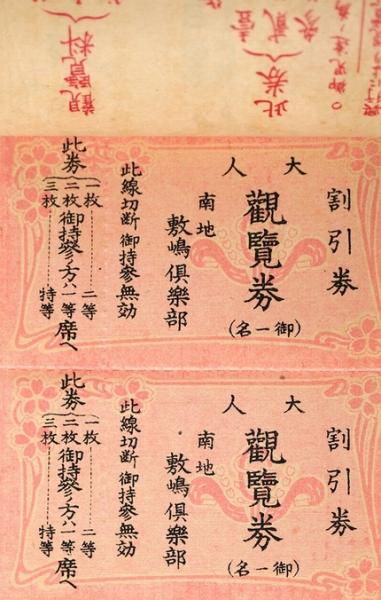 此券
壹
貳
參
割引券
大人
觀覽券
(御一名)
南地
敷嶋倶樂部
此線切断御持參無効
此券
一枚………二等
二枚御持參ノ方ハ一等席へ
三枚………特等
割引券
大人
觀覽券
(御一名)
南地
敷嶋倶樂部
此線切断御持參無効
此券
一枚………二等
二枚御持參ノ方ハ一等席へ
三枚………特等